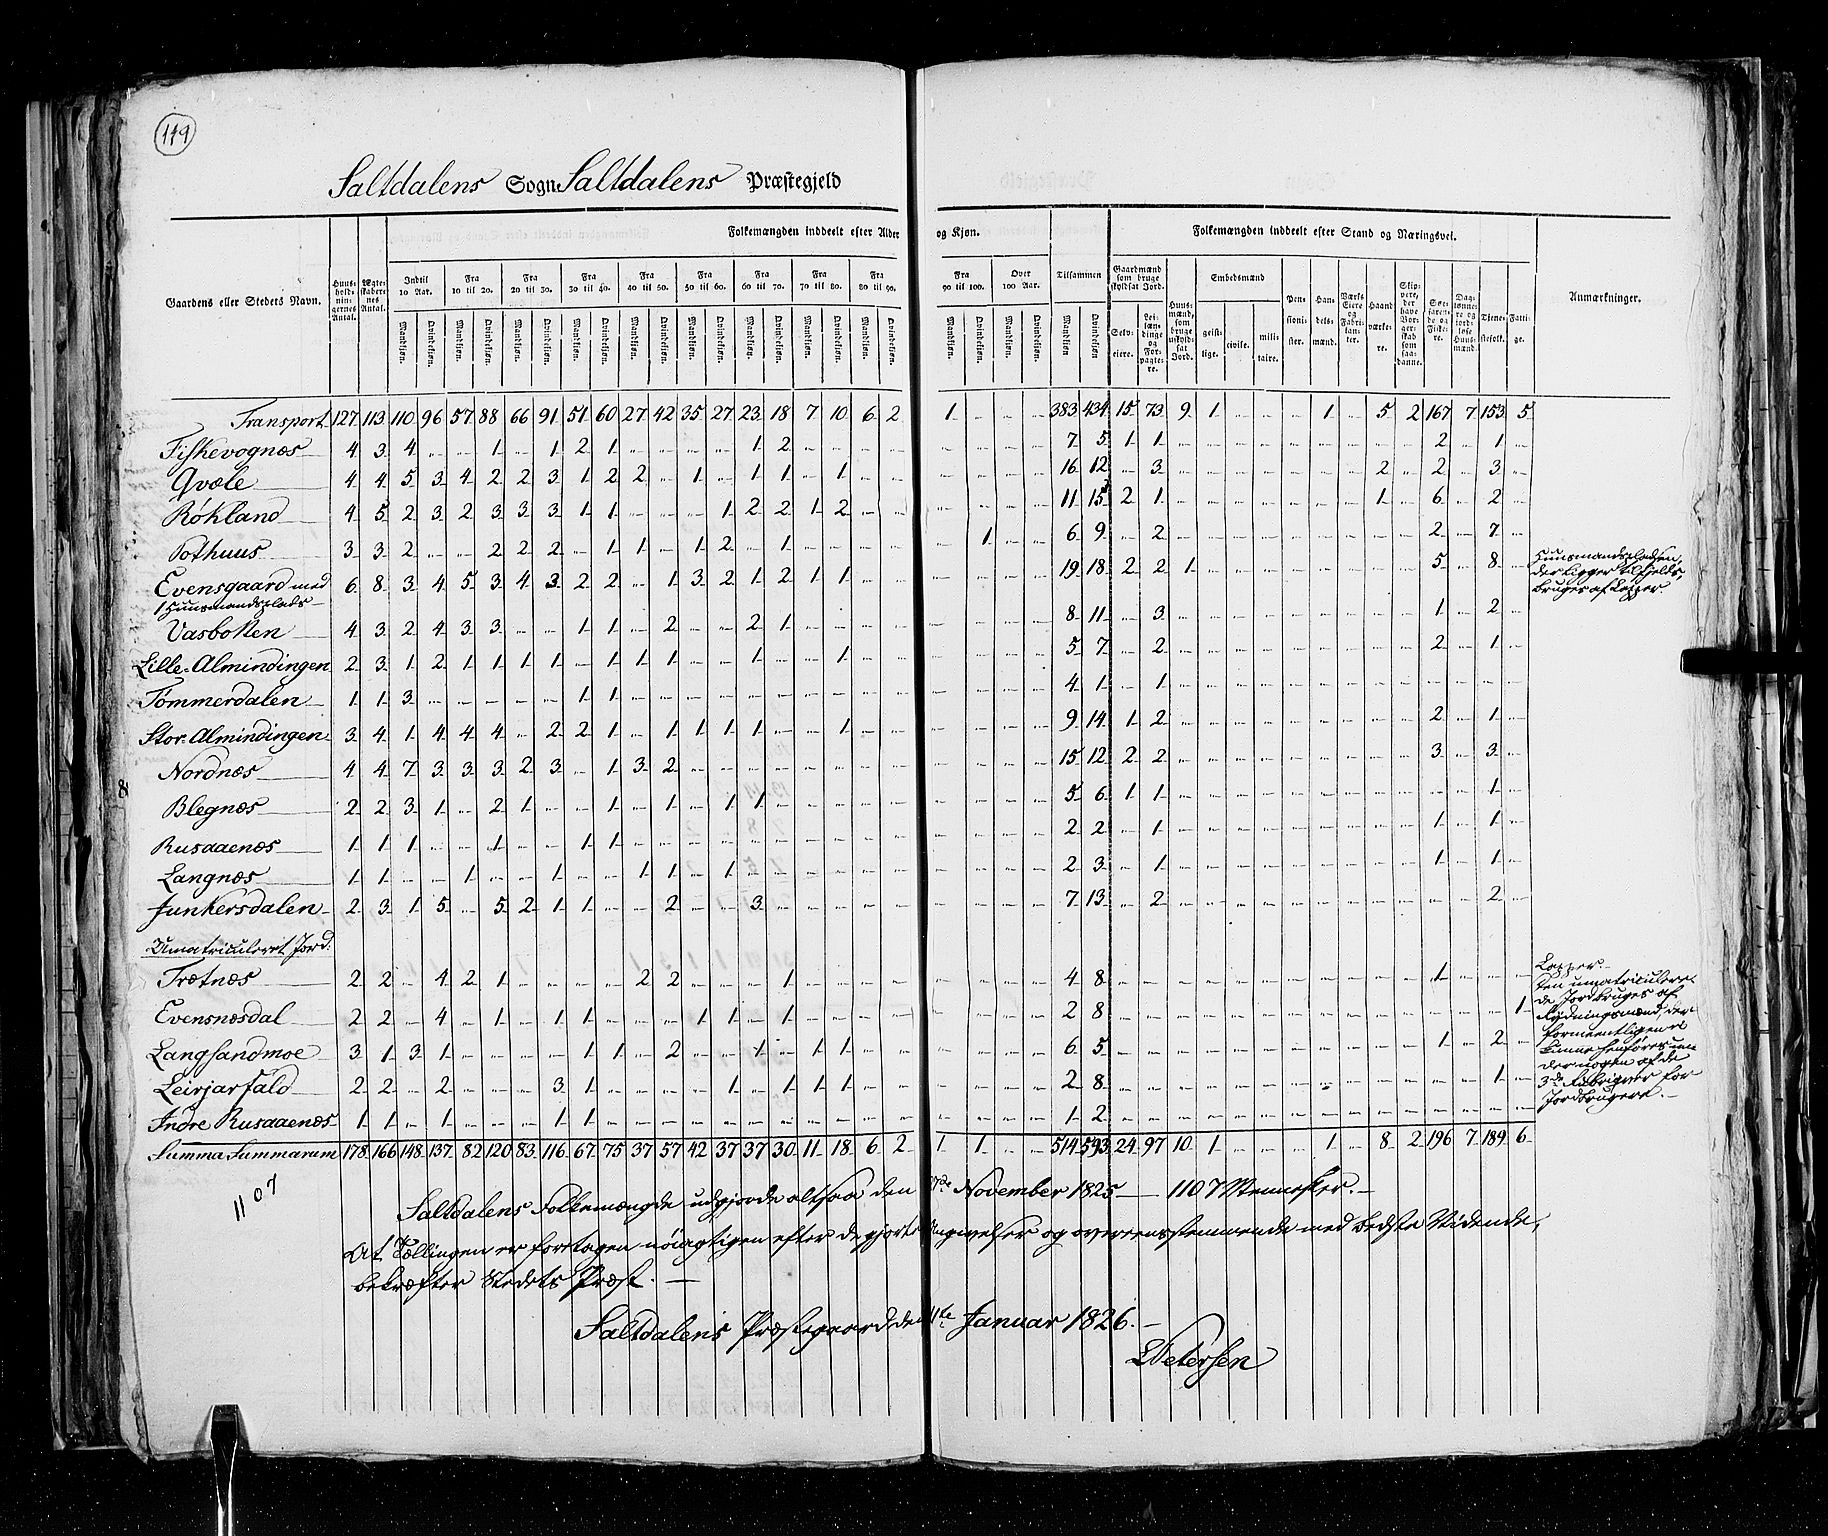 119
Saltdalens Sogn Saltdalens Præstegjeld
Folkemængden inddeelt efter Alder og Kjøn. Folkemængden inddeelt efter Stand og Næringsvei.
Gaardens eller Stedets Navn. Huusholdningernes Antal. Ægteskabernes Antal. Indtil 10 Aar. Fra 10 til 20. Fra 20 til 30. Fra 30 til 40. Fra 40 til 50. Fra 50 til 60. Fra 60 til 70. Fra 70 til 80. Fra 80 til 90. Fra 90 til 100. Over 100 Aar. Tilsammen Gaardmænd som bruge skyldsat Jord. Huusmænd, som bruge uskyldsat Jord. Embedsmænd Pensionister. Handelsmænd. Værks Eiere og Fabrikanter. Haandværkere. Skippere, der have Borgerskab som saadanne. Søefarende og Fiskere. Dagslønnere og jordløse Huusmænd. Tjenestefolk. Fattige. Anmærkninger.
Mandkjøn. Qvindekjøn. Selveiere. Leilændinge og Forpagtere. geistlige. civile. militaire.
Transport 127 113 110 96 57 88 66 91 51 60 27 42 35 27 23 18 7 10 6 2 1 „ „ „ 383 434 15 73 9 1 „ „ „ 1 „ 5 2 167 7 153 5
Fiskevognæs 4 3 4 „ „ 1 „ 1 2 1 „ „ „ „ 1 2 „ „ „ „ „ „ „ „ 7 5 1 1 „ „ „ „ „ „ „ „ „ 2 „ 1 „
Qvæle 4 4 5 3 4 2 2 3 1 2 2 „ 1 „ 1 1 „ 1 „ „ „ „ „ „ 16 12 „ 3 „ „ „ „ „ „ „ 2 „ 2 „ 3 „
Røkland 4 5 2 3 2 3 3 3 1 1 „ „ „ 1 2 2 1 2 „ „ „ „ „ „ 11 15 2 1 „ „ „ „ „ „ „ 1 „ 6 „ 2 „
Pothuus 3 3 2 „ „ 2 2 2 „ 1 1 „ 1 2 „ 1 „ „ „ „ „ 1 „ „ 6 9 „ 2 „ „ „ „ „ „ „ „ „ 2 „ 7 „
Evensgaard med 6 8 3 4 5 3 4 3 2 2 „ 1 3 2 1 2 1 1 „ „ „ „ „ „ 19 18 2 2 1 „ „ „ „ „ „ „ „ 5 „ 8 „ Huusmandspladsen,
der ligger tilfjelds,
bruges af Lapper.
1 Huusmandsplads
Vasbotten 4 3 2 4 3 3 „ „ 1 1 „ 2 „ „ 2 1 „ „ „ „ „ „ „ „ 8 11 „ 3 „ „ „ „ „ „ „ „ „ 1 „ 2 „
Lille-Almindingen 2 3 1 2 1 1 1 1 „ 1 1 1 „ „ 1 „ „ 1 „ „ „ „ „ „ 5 7 „ 2 „ „ „ „ „ „ „ „ „ 2 „ 1 „
Tømmerdalen 1 1 3 „ „ „ „ „ 1 1 „ „ „ „ „ „ „ „ „ „ „ „ „ „ 4 1 „ 1 „ „ „ „ „ „ „ „ „ „ „ „ „
Stor-Almindingen 3 4 1 4 4 4 „ 2 2 1 „ 1 1 1 1 „ „ 1 „ „ „ „ „ „ 9 14 1 2 „ „ „ „ „ „ „ „ „ 2 „ 1 „
Nordnæs 4 4 7 3 3 3 2 3 „ 1 3 2 „ „ „ „ „ „ „ „ „ „ „ „ 15 12 2 2 „ „ „ „ „ „ „ „ „ 3 „ 3 „
Blegnæs 2 2 3 1 „ 2 1 „ „ 1 „ 1 „ 1 1 „ „ „ „ „ „ „ „ „ 5 6 1 1 „ „ „ „ „ „ „ „ „ „ „ 1 „
Rusaaenæs 1 1 1 „ „ 1 „ „ 1 1 „ „ „ „ „ „ „ „ „ „ „ „ „ „ 2 2 „ 1 „ „ „ „ „ „ „ „ „ 1 „ 1 „
Langnæs 1 1 „ „ 1 „ „ 1 „ „ 1 1 „ 1 „ „ „ „ „ „ „ „ „ „ 2 3 „ 1 „ „ „ „ „ „ „ „ „ 1 „ 1 „
Junkersdalen 2 3 1 5 „ 5 2 1 1 „ „ 2 „ „ 3 „ „ „ „ „ „ „ „ „ 7 13 „ 2 „ „ „ „ „ „ „ „ „ „ „ 2 „
Umatriculeret Jord:
Trætnæs 2 2 „ 4 2 1 „ „ „ „ 2 2 „ „ „ 1 „ „ „ „ „ „ „ „ 4 8 „ „ „ „ „ „ „ „ „ „ „ 1 „ „ „ Lapper.
Evensnæsdal 2 2 „ 4 „ 1 „ 1 1 „ „ „ 1 1 „ 1 „ „ „ „ „ „ „ „ 2 8 „ „ „ „ „ „ „ „ „ „ „ „ „ „ 1
Langsandmoe 3 1 3 1 „ „ „ „ 1 1 „ 2 „ „ 1 „ 1 1 „ „ „ „ „ „ 6 5 „ „ „ „ „ „ „ „ „ „ „ 1 „ 2 „
Leirjarfald 2 2 „ 2 „ „ „ 3 1 „ „ „ „ 1 „ 1 1 1 „ „ „ „ „ „ 2 8 „ „ „ „ „ „ „ „ „ „ „ „ „ 1 „
Indre Rusaaenæs 1 1 „ 1 „ „ „ 1 1 „ „ „ „ „ „ „ „ „ „ „ „ „ „ „ 1 2 „ „ „ „ „ „ „ „ „ „ „ „ „ „ „
Den umatriculere-
de Jord bruges af
Rydningsmænd, der
formeentligen ei
kunne henføres un
der nogen af de
3de Rubriqver for
Jordbrugere.
Summa Summarum 178 166 148 137 82 120 83 116 67 75 37 57 42 37 37 30 11 18 6 2 1 1 „ „ 514 593 24 97 10 1 „ „ „ 1 „ 8 2 196 7 189 6
1107
Saltdalens Folkemængde udgjorde altsaa den November 1825 — 1107 Mennesker.
At Tællingen er foretagen nøiagtigen efter de gjorte Angivelser og overeensstemmende med bedste Vidende,
bekræfter Stedets Præst.
Saltdalens Præstegaard, den Januar 1826.
Petersen